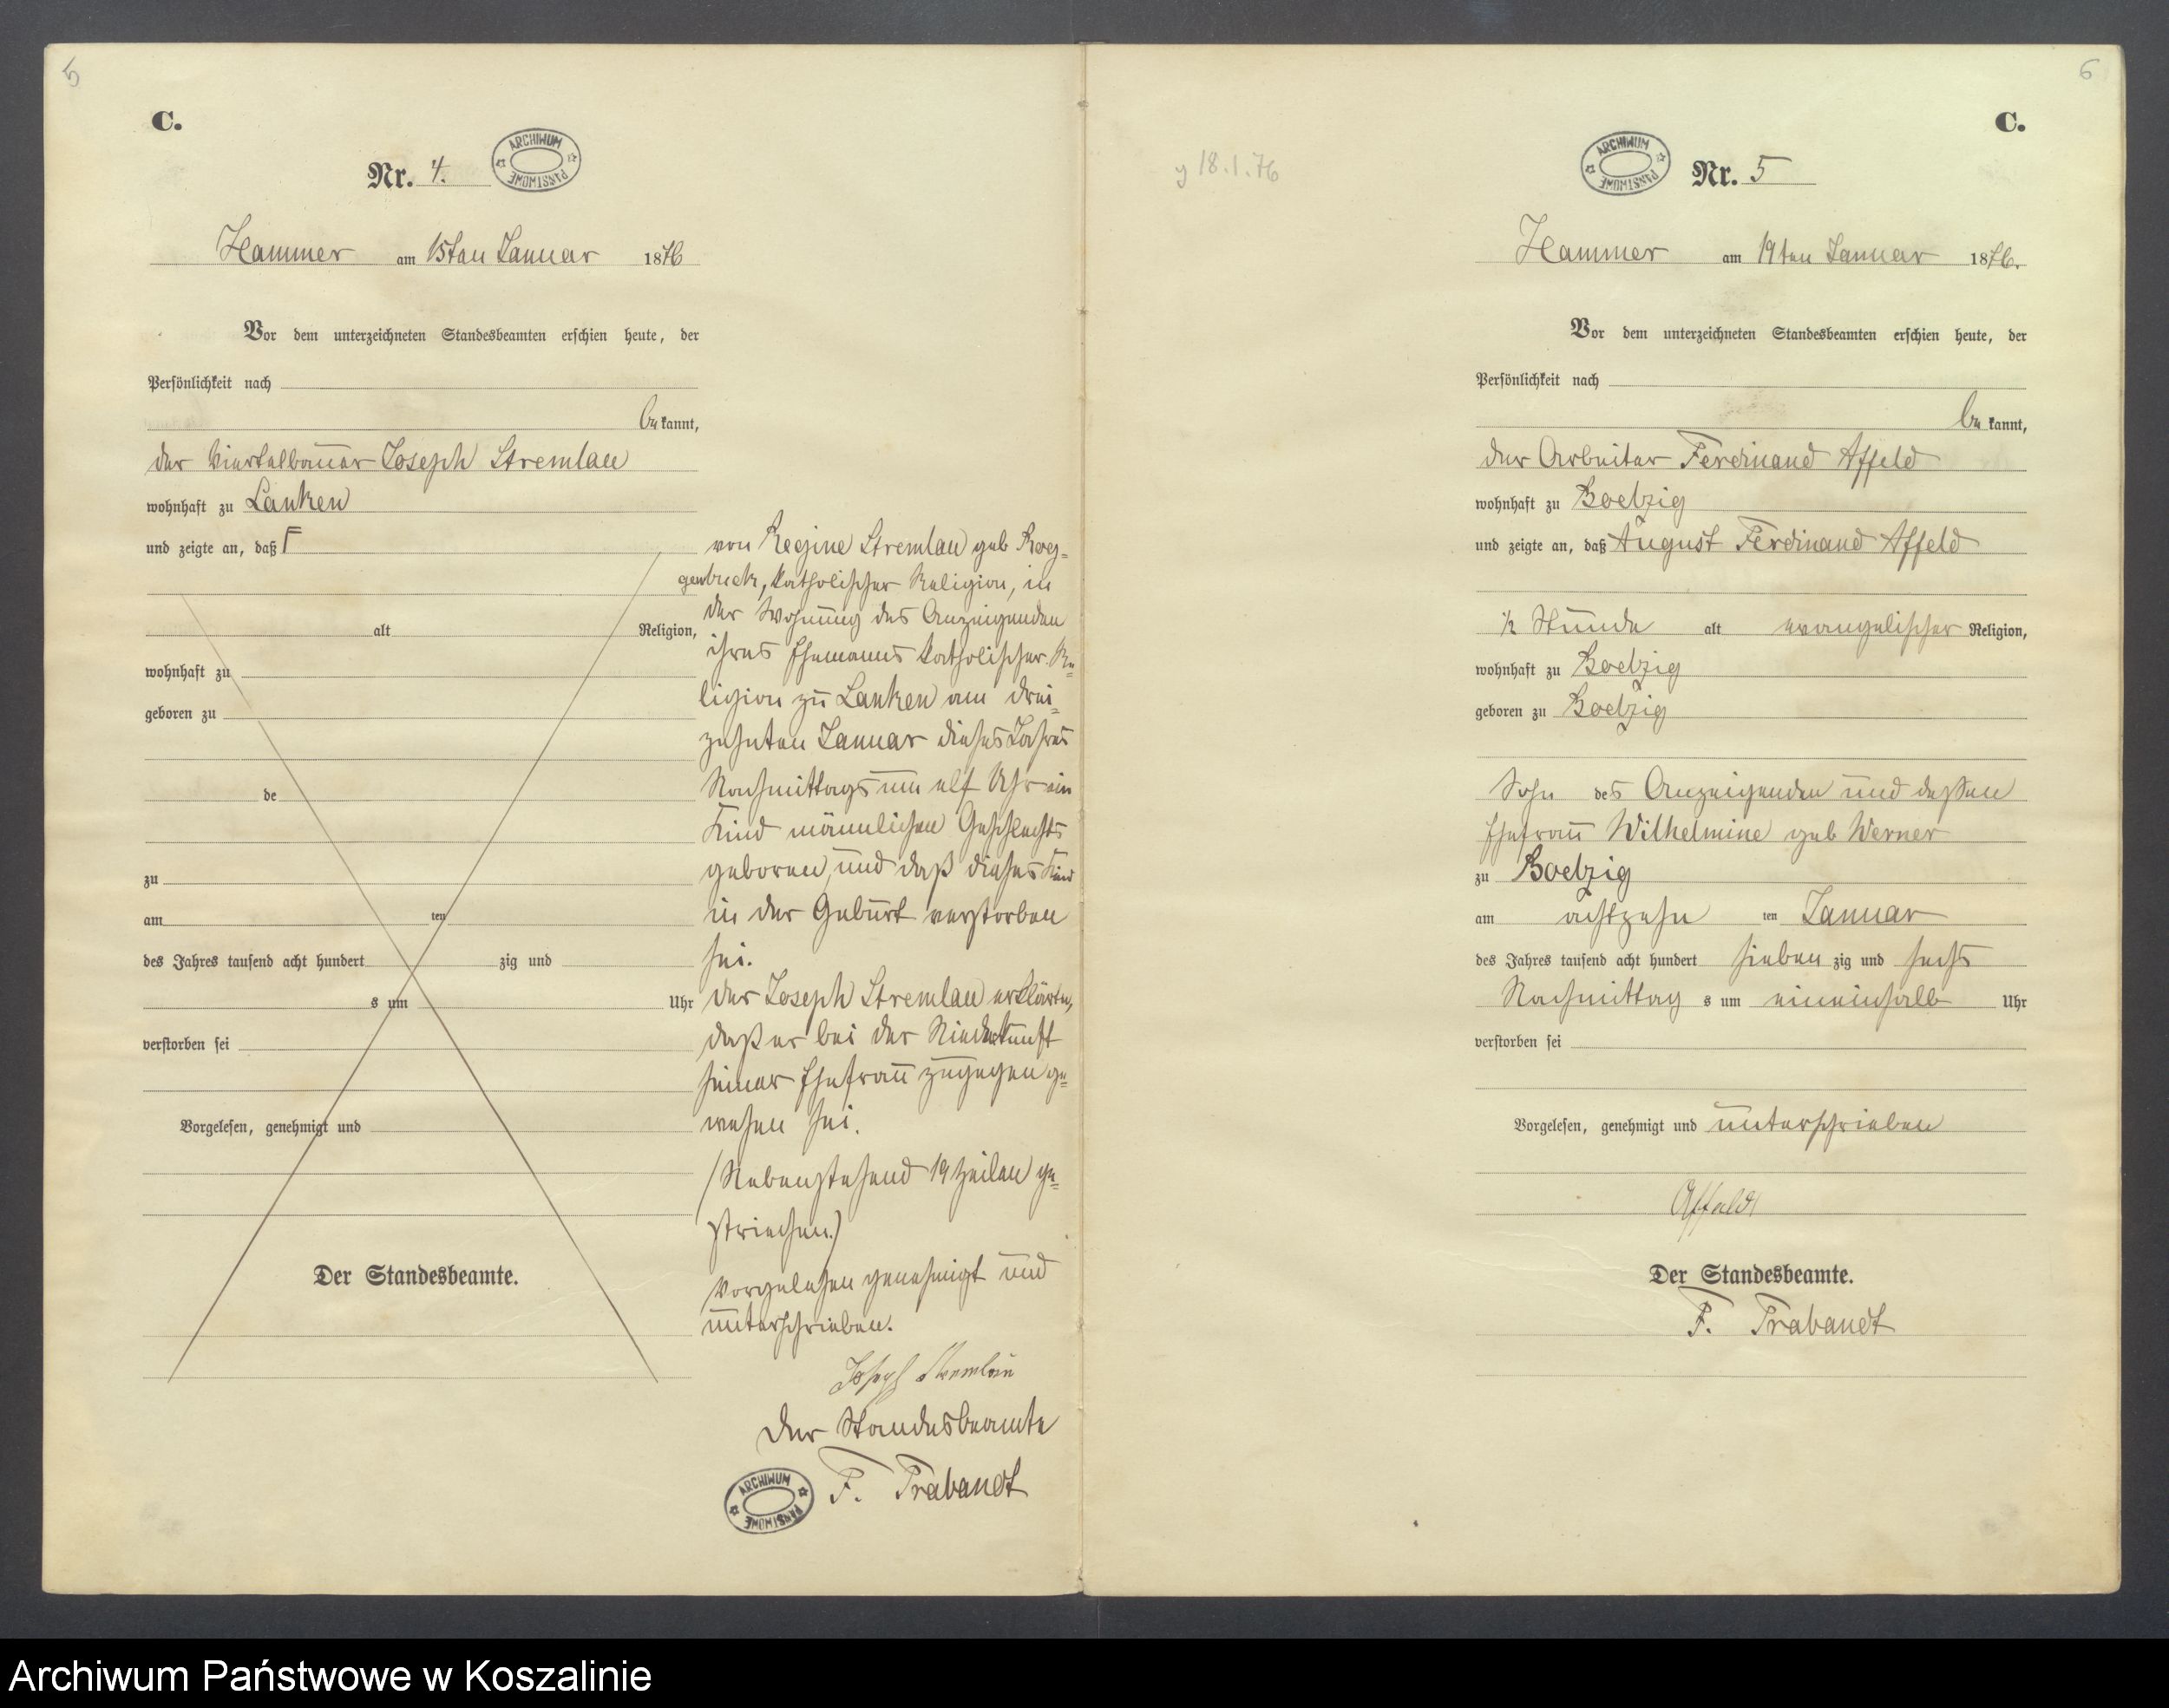 5
C.
Nr. 4.
ARCHIWUM PAŃSTWOWE
Hammer am 15ten Januar 1876
Vor dem unterzeichneten Standesbeamten erschien heute, der
Persönlichkeit nach
be kannt,
der Viertelbauer Joseph Stremlau
wohnhaft zu Lanken
und zeigte an, daß
alt Religion,
wohnhaft zu
geboren zu
de
zu
am ten
des Jahres tausend acht hundert zig und
s um Uhr
verstorben sei
Vorgelesen, genehmigt und
Der Standesbeamte.
von Regine Stremlau geb Rog-
genbuck, katholischer Religion, in
der Wohnung des Anzeigenden
ihres Ehemanns katholischer Re-
ligion zu Lanken am drei-
zehnten Januar dieses Jahres
Nachmittags um elf Uhr ein
Kind männlichen Geschlechts
geboren, und daß dieses Kind
in der Geburt verstorben
sei.
der Joseph Stremlau erklärte,
daß er bei der Niederkunft
seiner Ehefrau zugegen ge-
wesen sei.
(Nebenstehend 19 Zeilen ge-
strichen.)
Vorgelesen genehmigt und
unterschrieben.
Joseph Stremlau
Der Standesbeamte
F. Trabandt
ARCHIWUM PAŃSTWOWE
6
C.
18.1.76
ARCHIWUM PAŃSTWOWE
Nr. 5
Hammer am 19ten Januar 1876.
Vor dem unterzeichneten Standesbeamten erschien heute, der
Persönlichkeit nach
be kannt,
der Arbeiter Ferdinand Affeld
wohnhaft zu Boelzig
und zeigte an, daß August Ferdinand Affeld
1/2 Stunde alt evangelischer Religion,
wohnhaft zu Boelzig
geboren zu Boelzig
Sohn des Anzeigenden und deßen
Ehefrau Wilhelmine geb Werner
zu Boelzig
am achtzehn ten Januar
des Jahres tausend acht hundert sieben zig und sechs
Nachmittag s um eineinhalb Uhr
verstorben sei
Vorgelesen, genehmigt und unterschrieben
Affeldt
Der Standesbeamte.
F. Trabandt
Archiwum Państwowe w Koszalinie